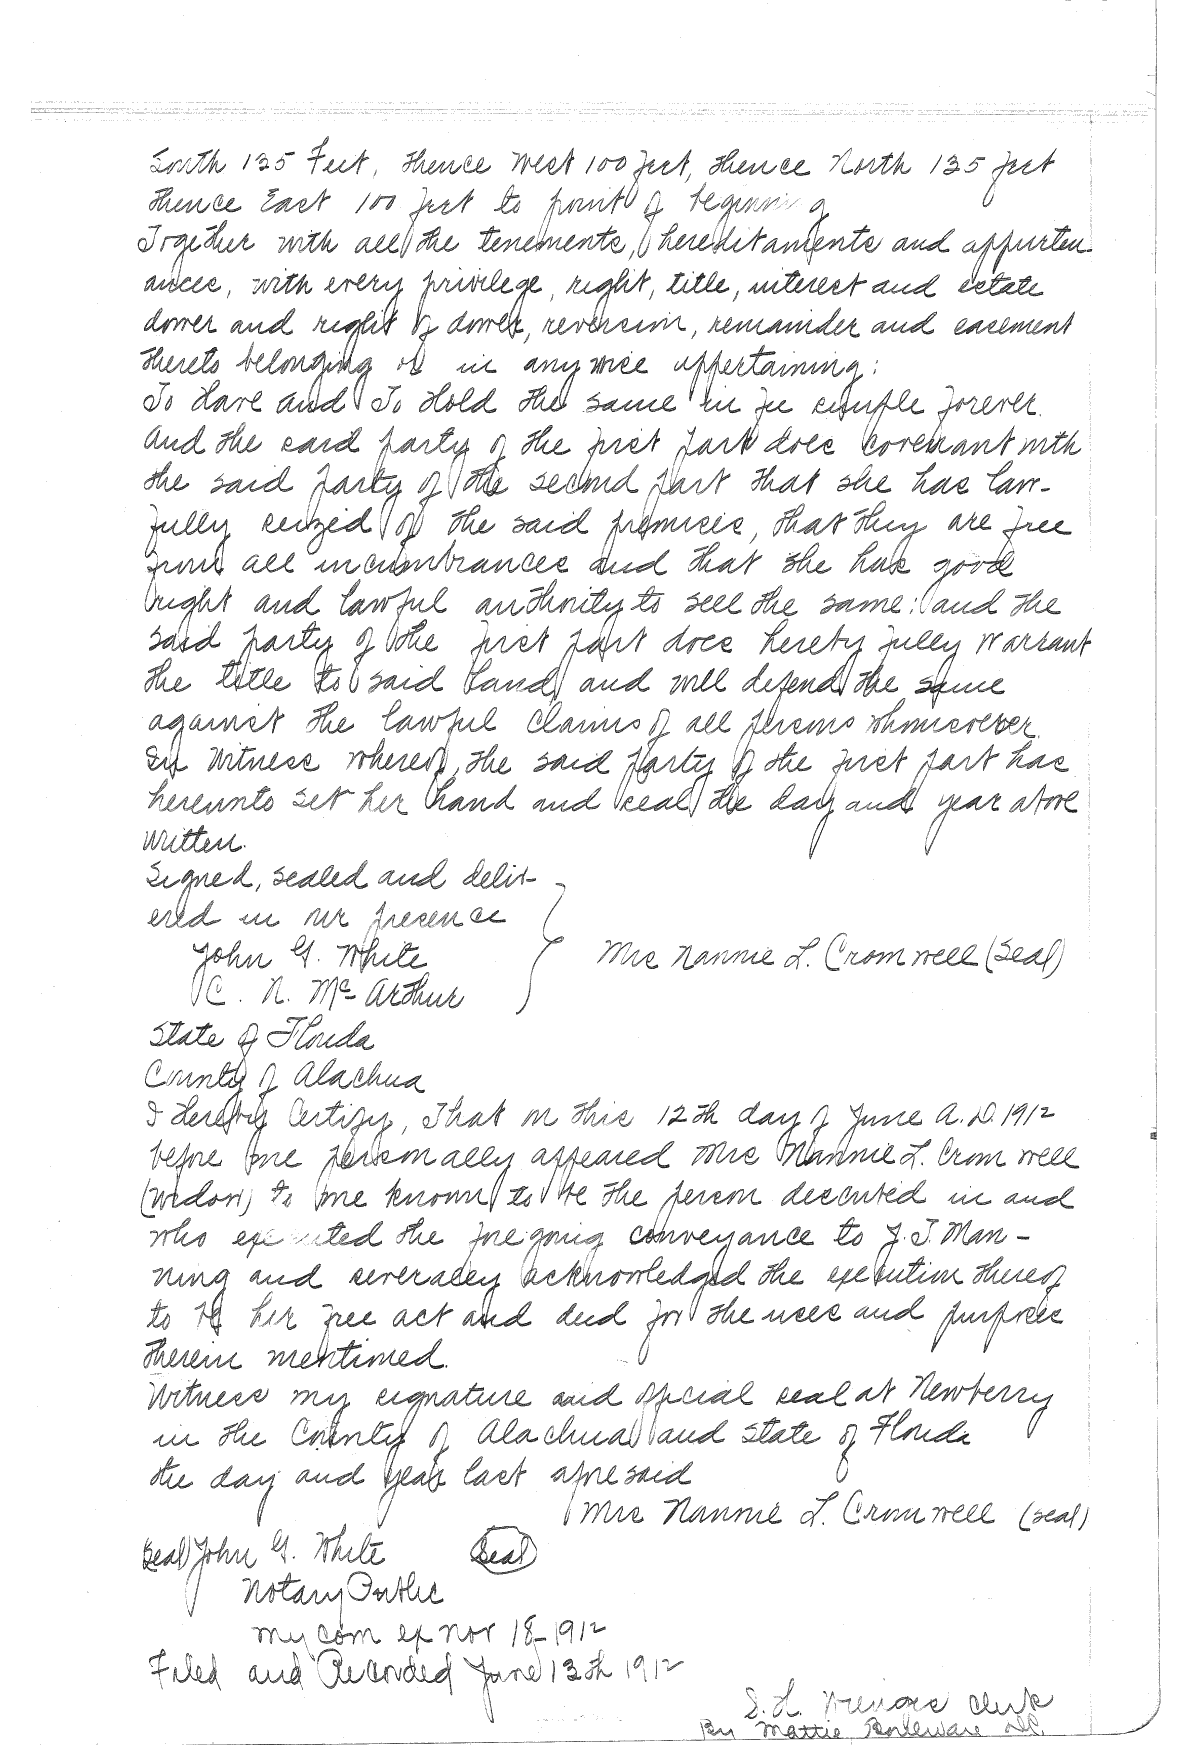 South 135 Feet, thence West 100 feet, thence North 135 feet
thence East 100 feet to point of beginning
Together with all the tenements, hereditaments and appurten-
ances, with every privilege, right, title, interest and estate
dower and right of dower, reversion, remainder and easement
thereto belonging or in anywise appertaining:
To Have and To Hold the same in fee simple forever.
And the said party of the first part does covenant with
the said party of the second part that she has law-
fully seized of the said premises, that they are free
from all incumbrances and that she has good
right and lawful authority to sell the same: and the
said party of the first part does hereby fully warrant
the title to said land, and will defend the same
against the lawful claims of all persons whomsoever.
In Witness whereof, the said party of the first part has
hereunto set her hand and seal the day and year above
written.
Signed, sealed and deliv-
ered in our presence
John G. White
Mrs Nannie L. Cromwell (Seal)
C. N. McArthur
State of Florida
County of Alachua
I Hereby Certify, That on this 12th day of June A.D. 1912
before me personally appeared Mrs Nannie L. Cromwell
(widow) to me known to be the person described in and
who executed the foregoing conveyance to J. T. Man-
ning and severally acknowledged the execution thereof
to be her free act and deed for the uses and purposes
therein mentioned.
Witness my signature and official seal at Newberry
in the County of Alachua and State of Florida
the day and year last aforesaid
Mrs Nannie L. Cromwell (seal)
Seal) John G. White (Seal)
Notary Public
my com ex Nov 18-1912
Filed and Recorded June 13th 1912
S. H. Clerk
By Mattie D.C.